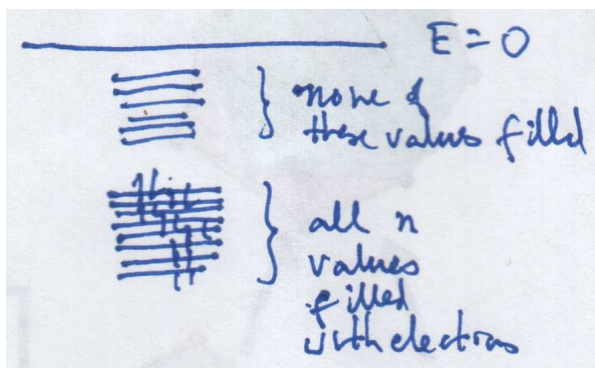 E = 0
none of
these values filled
all n
values
filled
with electrons